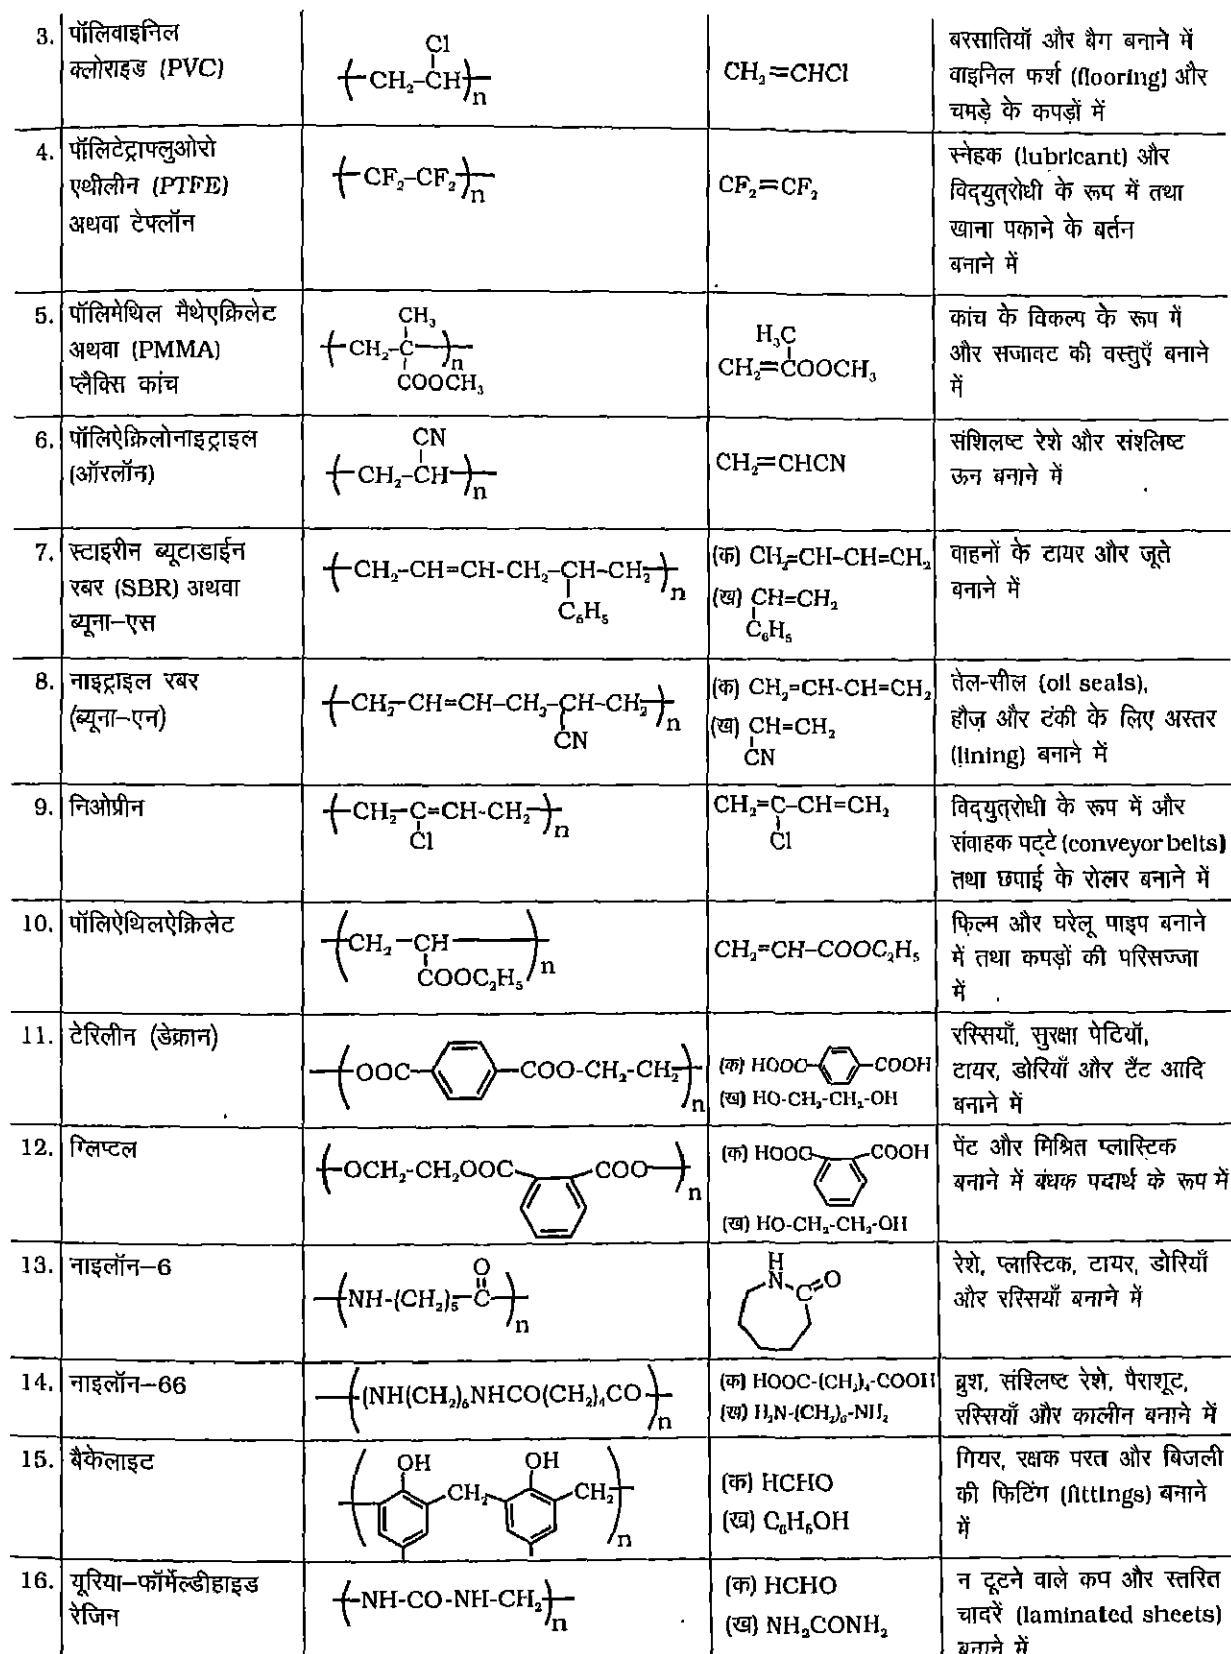 3. पॉलिवाइनिल
क्लोराइड (PVC)
Cl
(CH₂-CH)n
CH₂=CHCl
बरसातियॉ और बैग बनाने में
वाइनिल फर्श (flooring) और
चमड़े के कपड़ों में
4. पॉलिटेट्राफ्लुओरो
एथीलीन (PTFE)
अथवा टेफ्लॉन
(CF₂-CF₂)n
CF₂=CF₂
स्नेहक (lubricant) और
विद्युत्रोधी के रूप में तथा
खाना पकाने के बर्तन
बनाने में
5. पॉलिमेथिल मैथेएक्रिलेट
अथवा (PMMA)
प्लैक्सि कांच
CH₃
(CH₂-C)n
COOCH₃
H₃C
CH₂=COOCH₃
कांच के विकल्प के रूप में
और सजावट की वस्तुएँ बनाने
में
6. पॉलिऐक्रिलोनाइट्राइल
(ऑरलॉन)
CN
(CH₂-CH)n
CH₂=CHCN
संशिलष्ट रेशे और संश्लिष्ट
ऊन बनाने में
7. स्टाइरीन ब्यूटाडाईन
रबर (SBR) अथवा
ब्यूना–एस
(CH₂-CH=CH-CH₂-CH-CH₂)n
C₆H₅
(क) CH₂=CH-CH=CH₂
(ख) CH=CH₂
C₆H₅
वाहनों के टायर और जूते
बनाने में
8. नाइट्राइल रबर
(ब्यूना–एन)
(CH₂-CH=CH-CH₂-CH-CH₂)n
CN
(क) CH₂=CH-CH=CH₂
(ख) CH=CH₂
CN
तेल-सील (oil seals),
हौज़ और टंकी के लिए अस्तर
(lining) बनाने में
9. निओप्रीन
(CH₂-C=CH-CH₂)n
Cl
CH₂=C-CH=CH₂
Cl
विद्युत्रोधी के रूप में और
संवाहक पट्टे (conveyor belts)
तथा छपाई के रोलर बनाने में
10. पॉलिऐथिलऐक्रिलेट
(CH₂-CH)n
COOC₂H₅
CH₂=CH-COOC₂H₅
फ़िल्म और घरेलू पाइप बनाने
में तथा कपड़ों की परिसज्जा
में
11. टेरिलीन (डेक्रान)
(OOC COO-CH₂-CH₂)n
(क) HOOC COOH
(ख) HO-CH₂-CH₂-OH
रस्सियाँ, सुरक्षा पेटियॉ,
टायर, डोरियाँ और टैंट आदि
बनाने में
12. ग्लिप्टल
(OCH₂-CH₂OOC COO)n
(क) HOOC COOH
(ख) HO-CH₂-CH₂-OH
पेंट और मिश्रित प्लास्टिक
बनाने में बंधक पदार्थ के रूप में
13. नाइलॉन–6
O
(NH-(CH₂)₅-C)n
H
N C=O
रेशे, प्लास्टिक, टायर, डोरियाँ
और रस्सियाँ बनाने में
14. नाइलॉन–66
((NH(CH₂)₆NHCO(CH₂)₄CO)n
(क) HOOC-(CH₂)₄-COOH
(ख) H₂N-(CH₂)₆-NH₂
ब्रुश, संश्लिष्ट रेशे, पैराशूट,
रस्सियाँ और कालीन बनाने में
15. बैकेलाइट
OH OH
(CH₂ CH₂)n
(क) HCHO
(ख) C₆H₆OH
गियर, रक्षक परत और बिजली
की फिटिंग (fittings) बनाने
में
16. यूरिया–फॉर्मेल्डीहाइड
रेजिन
(NH-CO-NH-CH₂)n
(क) HCHO
(ख) NH₂CONH₂
न टूटने वाले कप और स्तरित
चादरें (laminated sheets)
बनाने में